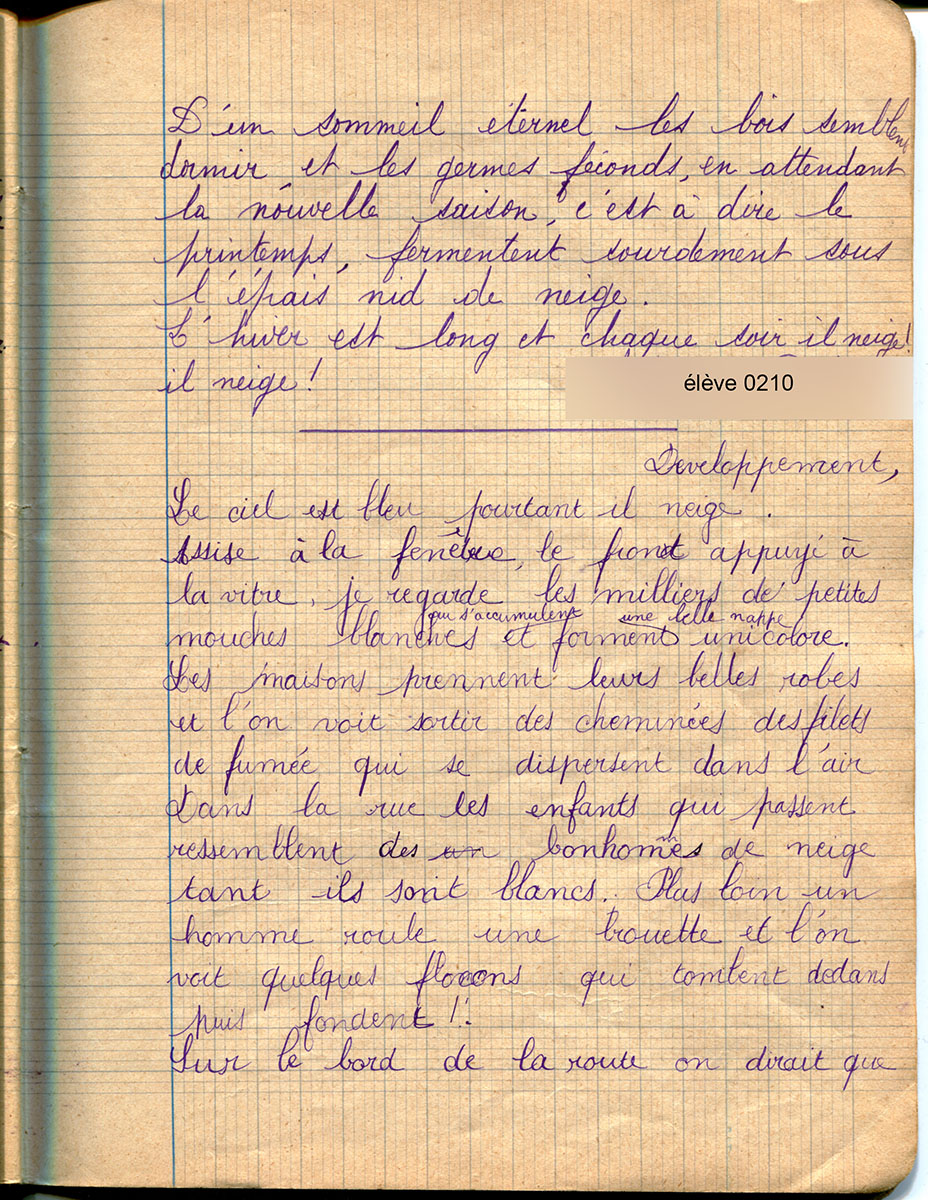 D'un sommeil éternel les bois semblent
dormir et les germes féconds, en attendant
la nouvelle saison, c'est à dire le
printemps, fermentent sourdement sous
l'épais nid de neige.
L'hiver est long et chaque soir il neige!
il neige!
élève 0210
Developpement,
Le ciel est bleu pourtant il neige.
Assise à la fenêtre, le front appuyé à
la vitre, je regarde les milliers de petites
qui s'accumulent une belle nappe
mouches blanches et forment unicolore.
Les maisons prennent leurs belles robes
et l'on voit sortir des cheminées des filets
de fumée qui se dispersent dans l'air
Dans la rue les enfants qui passent
ressemblent des un bonhommes de neige
tant ils sont blancs. Plus loin un
homme roule une brouette et l'on
voit quelques flocons qui tombent dedans
puis fondent!.
Sur le bord de la route on dirait que